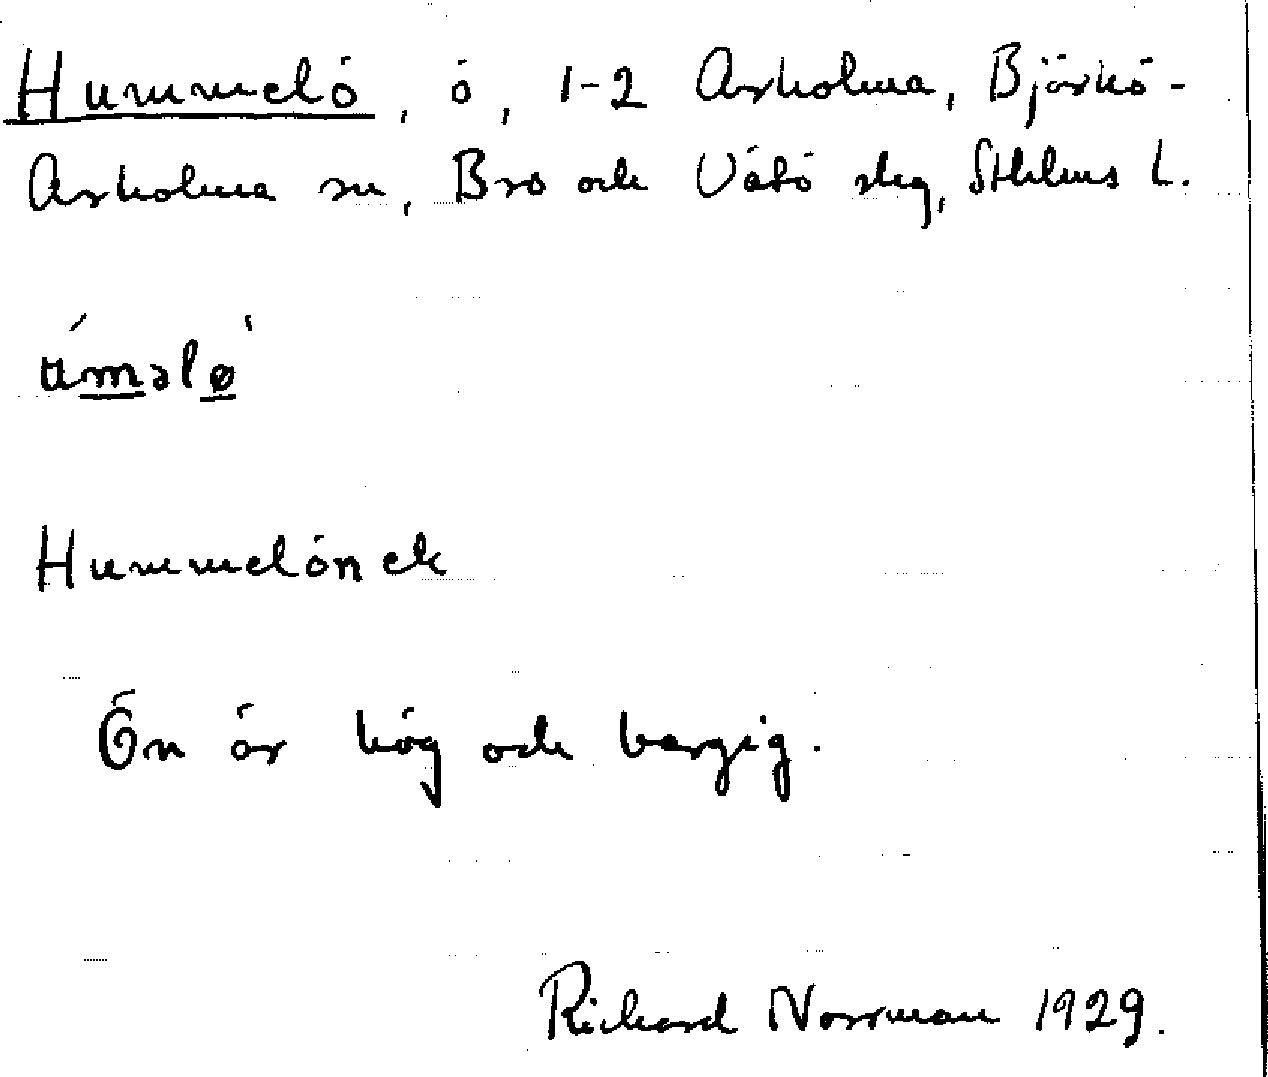 Hummelö, ö, 1-2 Arholma, Björkö-
Arholma sn, Bro och Vätö skg, Sthlms l.
ʉ́məlø̀
Hummelön ek
Ön är hög och bergig.
Richard Norrman 1929.